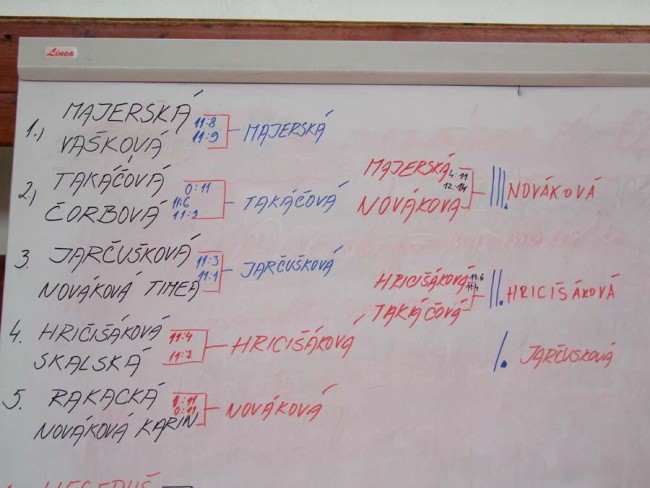 Linea
1.) MAJERSKÁ
11:8
11:9
VAŠKOVÁ
MAJERSKÁ
2) TAKÁČOVÁ
0:11
11:6
11:2
ČORBOVÁ
TAKÁČOVÁ
3. JARČUŠKOVÁ
11:3
11:1
NOVÁKOVÁ TIMEA
JARČUŠKOVÁ
4. HRIČIŠÁKOVÁ
11:4
11:7
SKALSKÁ
HRICIŠÁKOVÁ
5. RAKACKÁ
1:11
0:11
NOVÁKOVÁ KARIN
NOVÁKOVÁ
MAJERSKÁ
4:11
12:14
NOVÁKOVA
III. NOVÁKOVÁ
HRICIŠÁKOVÁ
11:6
11:4
TAKÁČOVÁ
II. HRICIŠÁKOVÁ
I. JARČUSKOVÁ